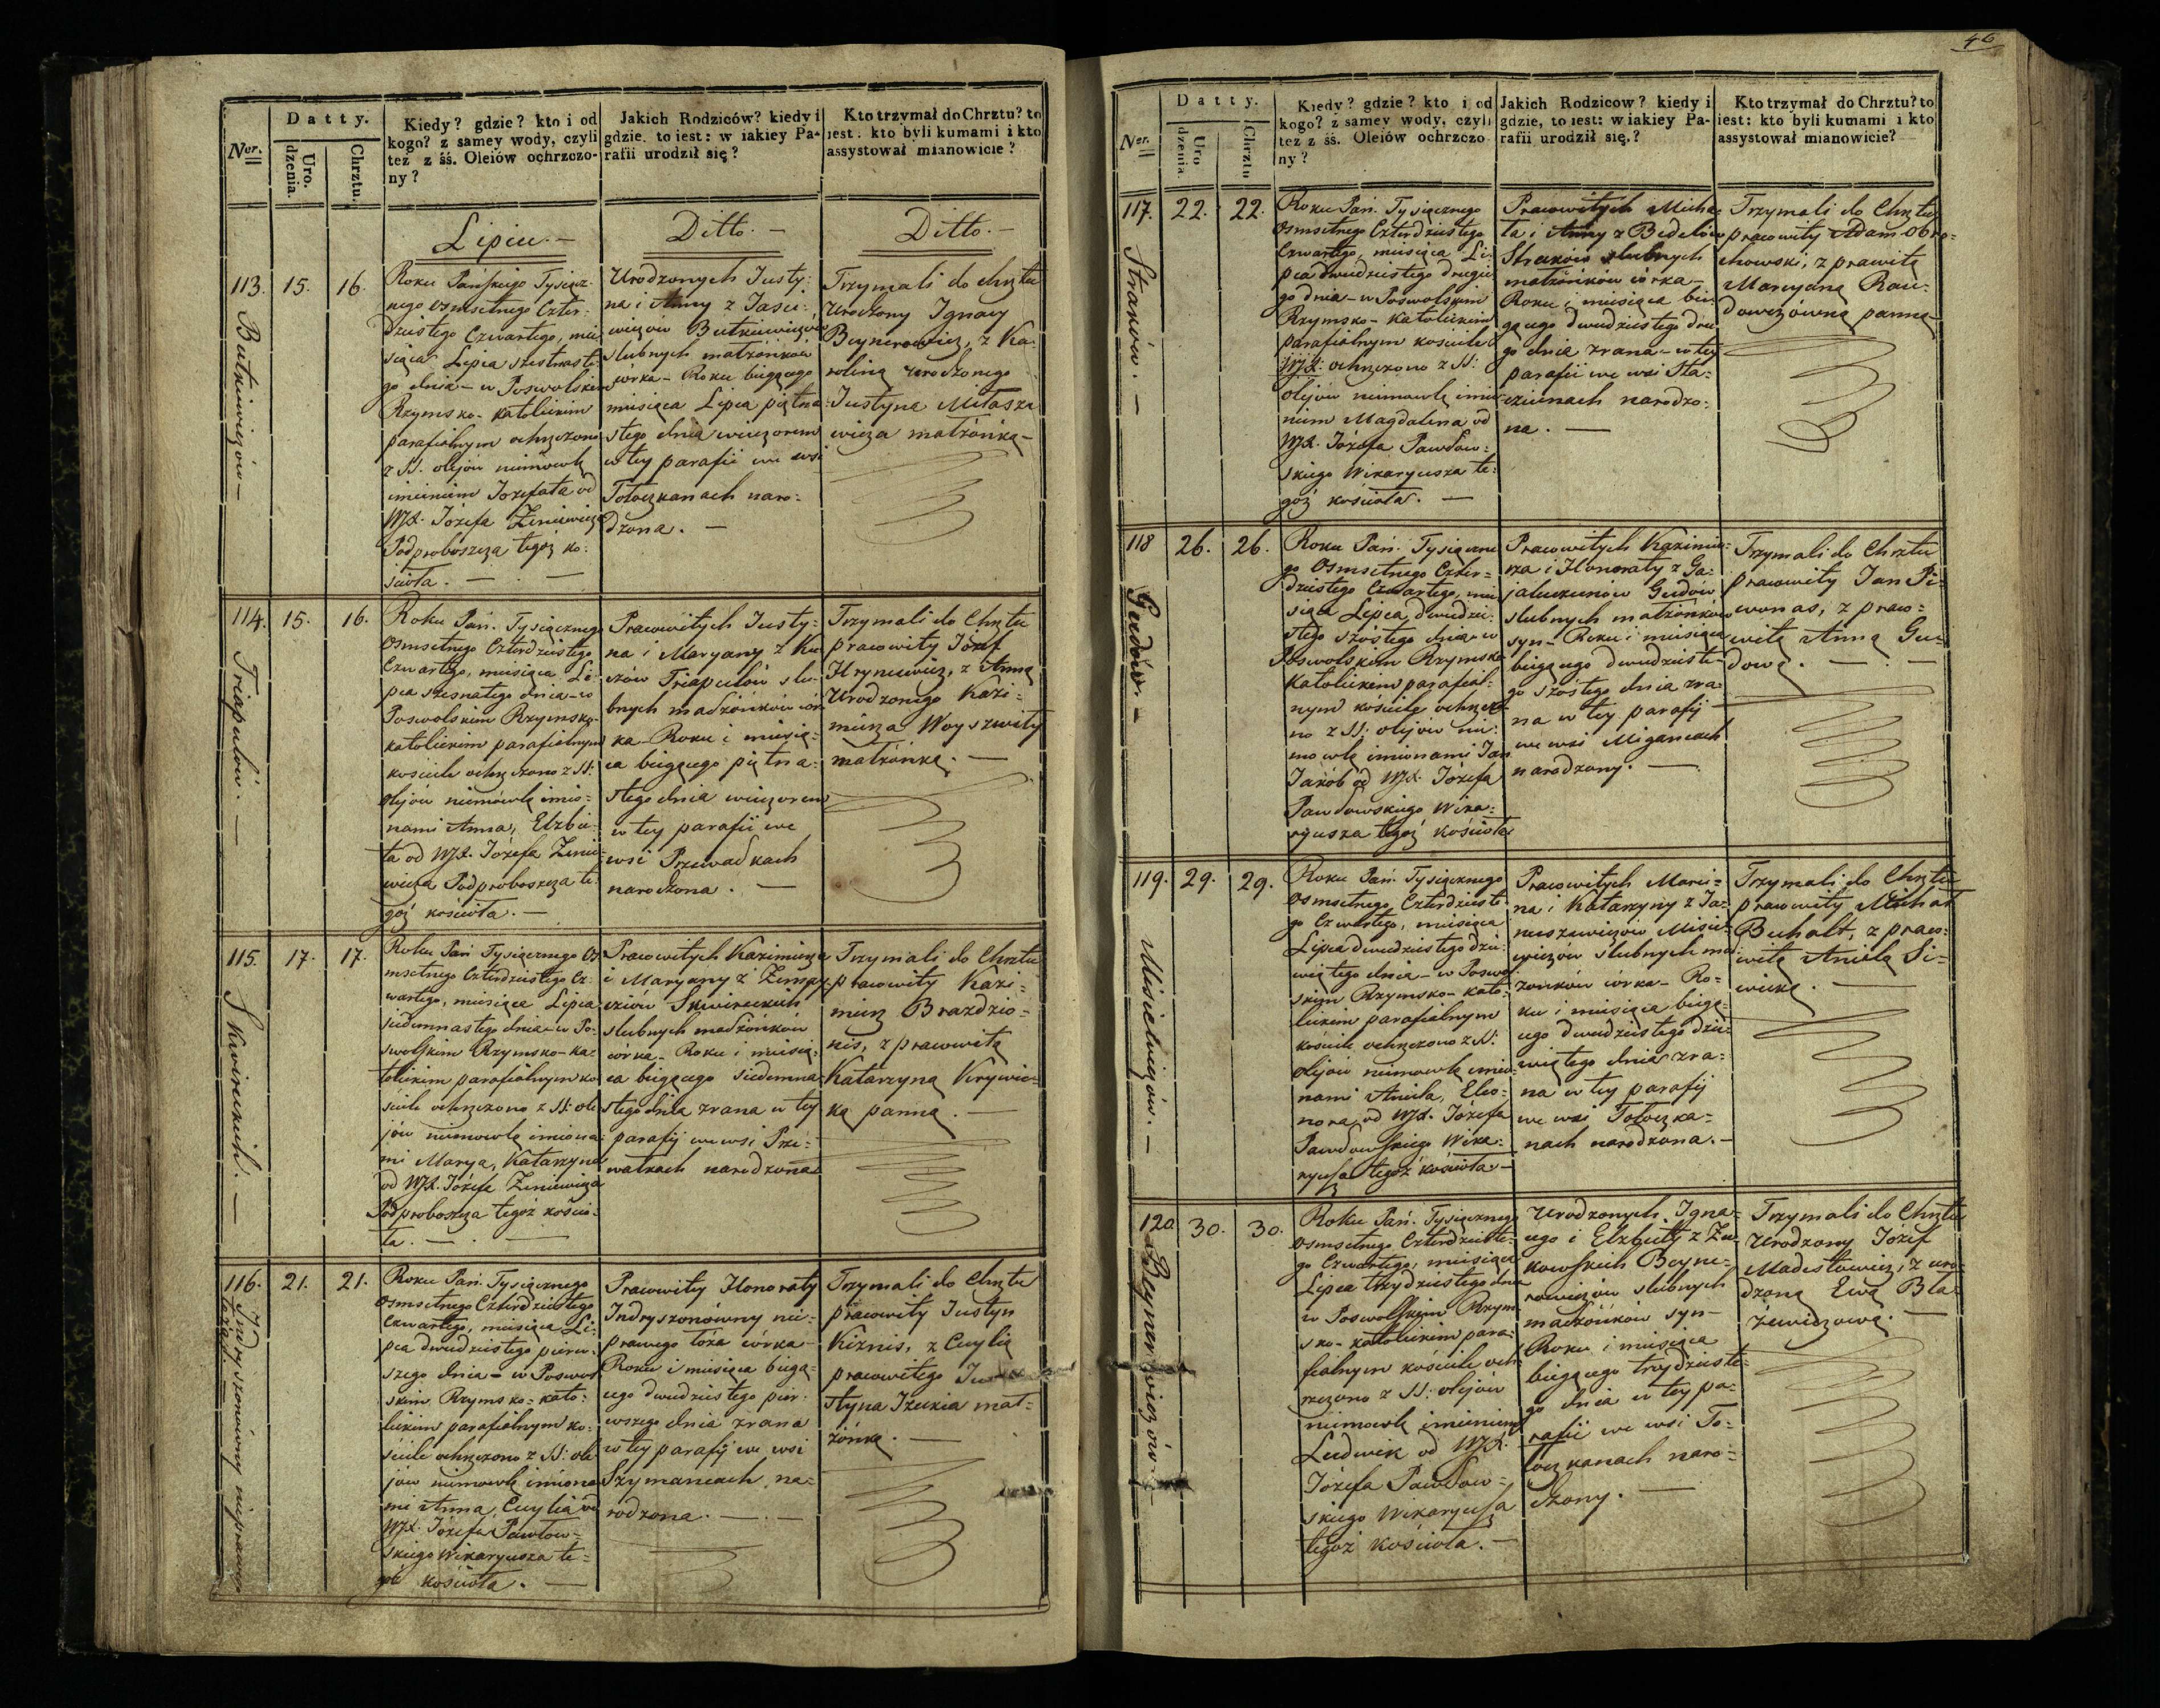 46
Datty.
Ner.
Uro.
dzenia.
Chrztu.
Kiedy? gdzie? kto i od
kogo? z samey wody, czyli
też z śś. Oleiów ochrzczo-
ny?
Jakich Rodziców? kiedy i
gdzie, to iest: w iakiey Pa-
rafii urodził się?
Kto trzymał do Chrztu? to
iest: kto byli kumami i kto
assystował mianowicie?
Lipiec. —
Ditto. —
Ditto. —
113.
Butkiewiczów —
15.
16.
Roku Pańskiego Tysiącz-
nego osmsetnego Czter-
dziestego Czwartego, mie-
siąca Lipca szesnaste-
go dnia — w Poswolskim
Rzymsko-katolickim
parafialnym ochrzczono
z SS. olejów niemowlę
imieniem Jozefata od
WJX. Józefa Zeniewicza
Podproboszcza tegóż ko-
ścioła. —
Urodzonych Justy-
na i Anny z
Butkiewiczów
slubnych małżonków
córka — Roku biegącego
miesiąca Lipca piętna-
stego dnia wieczorem
w tey parafii we wsi
Tołoczkanach naro-
dzona. —
Trzymali do chrztu
Urodzony Ignacy
Beynerowicz, z Ka-
roliną urodzonego
Justyna Miłasze-
wicza małżonką —
114.
Triapulów. —
15.
16.
Roku Pań. Tysiącznego
Osmsetnego Czterdziestego
Czwartego, miesiąca Li-
pca szesnatego dnia — w
Poswolskim Rzymsko-
katolickim parafialnym
kościele ochrzczono z SS.
olejów niemówlę imio-
nami Anna, Elzbie-
ta od WJX. Józefa Zenie-
wicza Podproboszcza te-
goż kościoła. —
Pracowitych Justy-
na i Maryany z Ku-
czów Triapulów slu-
bnych małżonków cór-
ka — Roku i miesią-
ca biegącego piętna-
stego dnia wieczorem
w tey parafii we
wsi Przewałkach
narodzona. —
Trzymali do Chrztu
pracowity Józef
Hryncewicz, z Anną
Urodzonego Kazi-
mierza Woyszwiły
małżonką. —
115.
Skwireckich. —
17.
17.
Roku Pań Tysiącznego Os-
msetnego Czterdziestego Cz-
wartego, miesiąca Lipca
siedemnastego dnia — w Po-
swolskim Rzymsko-ka-
tolickim parafialnym ko-
ściele ochrzczono z SS. ole-
jów niemowlę imiona-
mi Marya, Katarzyna
od WJX. Józefa Zeniewicza
Podproboszcza tegóż kościo-
ła. —
Pracowitych Kazimierza
i Maryany z
Skwireckich
slubnych małżonków
córka — Roku i miesią-
ca biegącego siedemna-
stego dnia zrana w tey
parafij we wsi Prze-
wałkach narodzona
Trzymali do Chrztu
pracowity Kazi-
mierz Brazdzio-
nis, z pracowitą
Katarzyną Krywic-
ką panną. —
116.
Indryszonówny nieprawego
łoża. —
21.
21.
Roku Pań. Tysiącznego
Osmsetnego Czterdziestego
Czwartego, miesiąca Li-
pca dwudziestego pierw-
szego dnia — w Poswol-
skim Rzymsko-kato-
lickim parafialnym ko-
ściele ochrzczono z SS: ole-
jów niemowlę imiona-
mi Anna, Cecylia od
WJX. Józefa Pawłow-
skiego Wikaryusza te-
goż kościoła. —
Pracowity Honoraty
Indryszonówny nie-
prawego łoża córka —
Roku i miesiąca biegą-
cego dwudziestego pier-
wszego dnia zrana
w tey parafij we wsi
Szymancach na-
rodzona. —
Trzymali do Chrztu
pracowity Justyn
Kiznis, z Cecylią
pracowitego Ju-
styna małż-
żónką. —
Datty.
Ner.
Uro
dzenia.
Chrztu
Kiedy? gdzie? kto i od
kogo? z samey wody, czyli
też z śś. Oleiów ochrzczo
ny?
Jakich Rodzicow? kiedy i
gdzie, to iest: w iakiey Pa-
rafii urodził się.?
Kto trzymał do Chrztu? to
iest: kto byli kumami i kto
assystował mianowicie?
117.
Straków. —
22.
22.
Roku Pań. Tysiącznego
Osmsetnego Czterdziestego
Czwartego, miesiąca Li-
pca dwudziestego drugie-
go dnia — w Poswolskim
Rzymsko-Katolickim
parafialnym kościele
ochrzczono z SS:
olejów niemowlę imie-
niem Magdalena od
WJX. Józefa Pawłow-
skiego Wikaryusza te-
goż kościoła. —
Pracowitych Micha-
ła i Anny z Bedelów
Straków slubnych
małżónków córka —
Roku i miesiąca bie-
gącego dwudziestego dru-
go dnia zrana — w tey
parafii we wsi Sta-
czienach narodzo-
na. —
Trzymali do Chrztu
pracowity Adam Obro-
chowski, z pracowitą
Maryaną Rau-
dowiczówną panną
118
Gudów. —
26.
26.
Roku Pań. Tysiączne-
go Osmsetnego Czter-
dziestego Czwartego, mie-
siąca Lipca, dwudzie-
stego szóstego dnia w
Poswolskim Rzymsko-
Katolickim parafial-
nym kościele ochrzczo-
no z SS: olejów nie-
mowlę imionami Jan
Jakób od WJX. Józefa
Pawłowskiego Wika-
ryusza tegoż kościoła
Pracowitych Kazimie-
rza i Honoraty z Ga-
jalunów Gudów
slubnych małżonków
syn — Roku i miesiąca
biegącego dwudzieste-
go szóstego dnia zra-
na w tey parafij
we wsi Migancach
narodzony. —
Trzymali do Chrztu
pracowity Jan Pi-
wonas, z praco-
witą Anną Gu-
dową. —
119.
Misiewiczów. —
29.
29.
Roku Pań. Tysiącznego
Osmsetnego Czterdzieste-
go Czwartego, miesiąca
Lipca dwudziestego dzie-
wiątego dnia — w Poswol-
skim Rzymsko-kato-
lickim parafialnym
kościele ochrzczono z SS:
olejów niemowlę imio-
nami Aniela, Eleo-
nora, od WJX. Józefa
Pawłowskiego Wika-
ryusza tegoż kościoła —
Pracowitych Marci-
na i Katarzyny z Ja-
nuszewiczów Misie-
wiczów slubnych mał-
żonków córka — Ro-
ku i miesiąca biegą-
cego dwudziestego dzie-
wiątego dnia zra-
na w tey parafij
we wsi Tołoczka-
nach narodzona. —
Trzymali do Chrztu
pracowity Michał
Buhałt, z praco-
witą Anielą Si-
wicką. —
120.
Beynerowiczów. —
30.
30.
Roku Pań. Tysiącznego
Osmsetnego Czterdzieste-
go Czwartego, miesiąca
Lipca trzydziestego dnia
w Poswolskim Rzym-
sko-katolickim para-
fialnym kościele och-
rzczono z SS: olejów
niemowlę imieniem
Ludwik od WJX.
Józefa Pawłow-
skiego Wikaryusza
tegoż kościoła. —
Urodzonych Igna-
cego i Elzbiety z Żu-
kowskich Beyne-
rowiczów slubnych
małżónków syn —
Roku i miesiąca
biegącego trzydzieste-
go dnia w tey pa-
rafii we wsi To-
łoczkanach naro-
dzony. —
Trzymali do Chrztu
Urodzony Józef
Madesłowicz, z uro-
dzoną Ewą Bła-
żewiczową. —